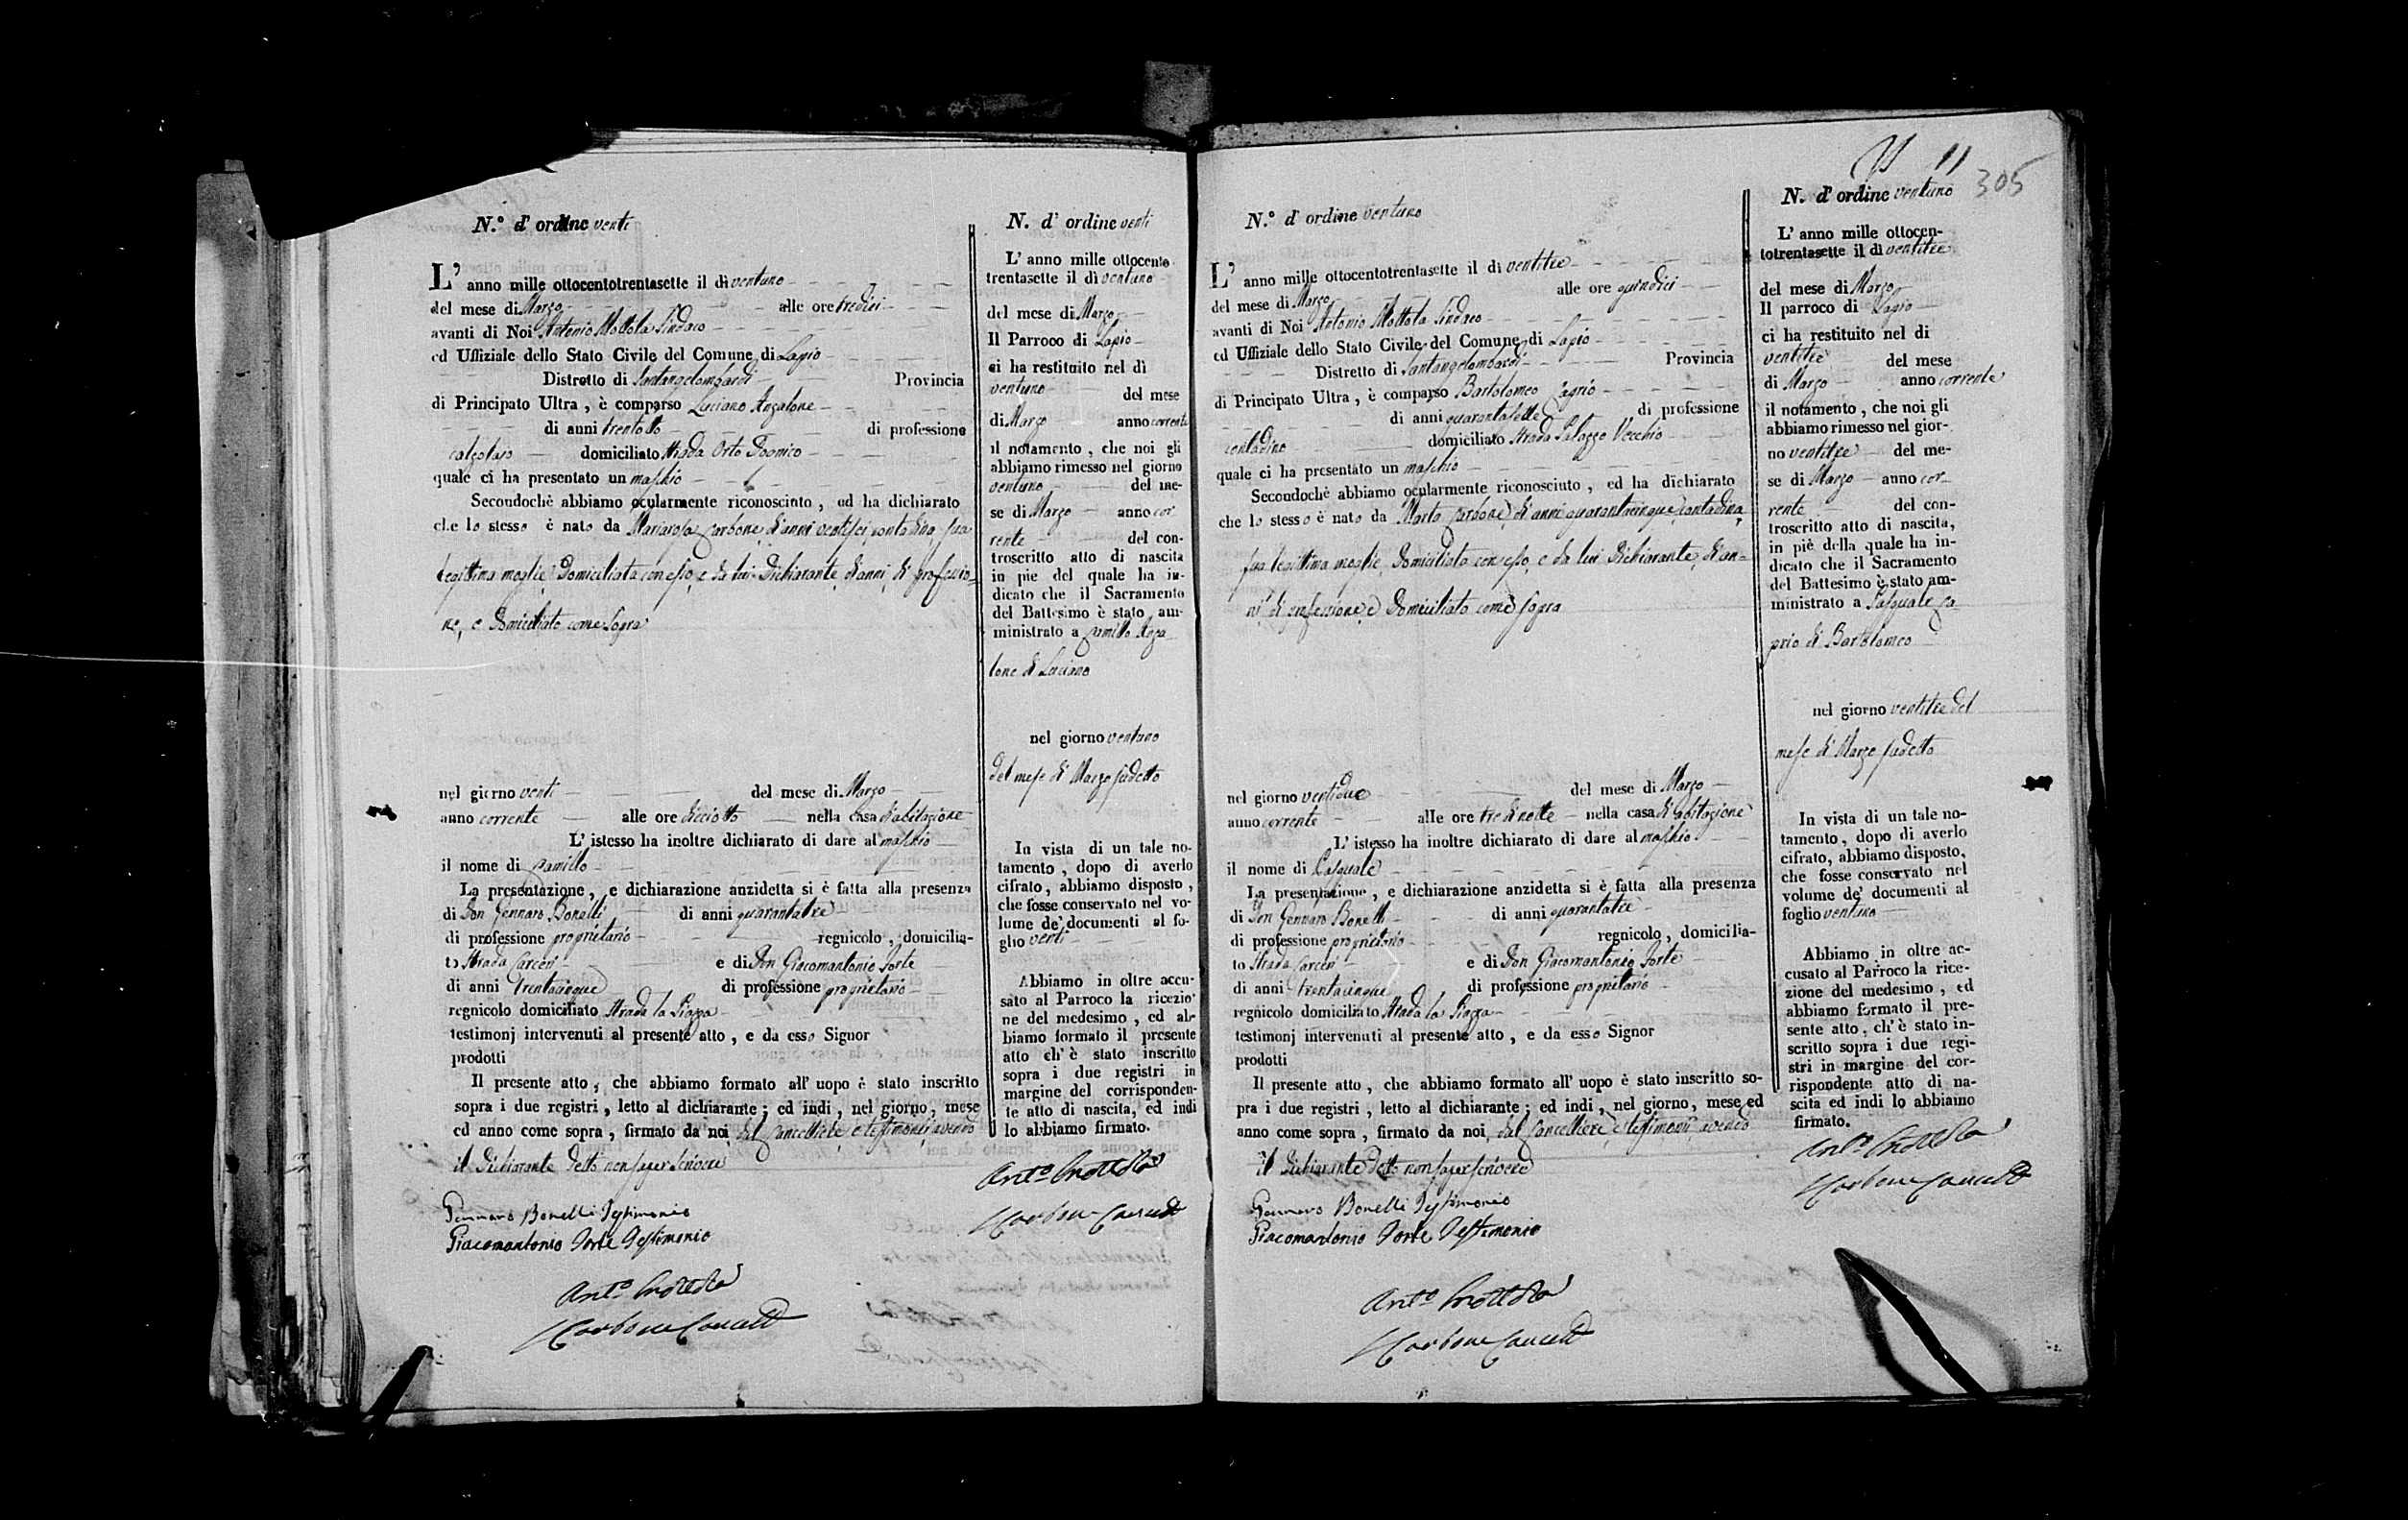 N.º d' ordine venti
L' anno mille ottocentotrentasette il dì ventuno
del mese di Marzo alle ore tredici
avanti di Noi Antonio Mottola Sindaco
ed Uffiziale dello Stato Civile del Comune di Lapio
Distretto di Santangelombardi Provincia
di Principato Ultra, è comparso Luciano Anzalone
di anni trentotto di professione
calzolaio domiciliato strada Orto
quale ci ha presentato un maschio
Secondochè abbiamo ocularmente riconosciuto, ed ha dichiarato
che lo stesso è nato da Mariarosa Carbone di anni ventisei contadina sua
legittima moglie domiciliata con esso, e da lui Dichiarante di anni, di professio-
ne, e domiciliato come sopra
nel giorno venti del mese di Marzo
anno corrente alle ore dieciotto nella casa d'abitazione
L' istesso ha inoltre dichiarato di dare al maschio
il nome di Camillo
La presentazione, e dichiarazione anzidetta si è fatta alla presenza
di Don Gennaro Bonelli di anni quarantatre
di professione proprietario regnicolo, domicilia-
to strada Carceri e di Don Giacomantonio Forte
di anni trentacinque di professione proprietario
regnicolo domiciliato strada la Piazza
testimonj intervenuti al presente atto, e da esso Signor
prodotti
Il presente atto, che abbiamo formato all' uopo è stato inscritto
sopra i due registri, letto al dichiarante; ed indi, nel giorno, mese
ed anno come sopra, firmato da noi, dal Cancelliere, e testimonj, avendo
il Dichiarante detto non saper scrivere
Gennaro Bonelli Testimonio
Giacomantonio Forte Testimonio
Ant.º Mottola
Carbone Cancell
N. d' ordine venti
L' anno mille ottocento
trentasette il dì ventuno
del mese di Marzo
Il Parroco di Lapio
ci ha restituito nel dì
ventuno del mese
di Marzo anno corrente
il notamento, che noi gli
abbiamo rimesso nel giorno
ventuno del me-
se di Marzo anno cor
rente del con-
troscritto atto di nascita
in pie del quale ha in-
dicato che il Sacramento
del Battesimo è stato am-
ministrato a Camillo Anza
lone di Luciano
nel giorno ventuno
del mese di Marzo sudetto
In vista di un tale no-
tamento, dopo di averlo
cifrato, abbiamo disposto,
che fosse conservato nel vo-
lume de' documenti al fo-
glio venti
Abbiamo in oltre accu-
sato al Parroco la ricezio-
ne del medesimo, ed ab-
biamo formato il presente
atto ch' è stato inscritto
sopra i due registri in
margine del corrisponden-
te atto di nascita, ed indi
lo abbiamo firmato.
Ant.º Mottola
Carbone Cancell
11
305
N.º d' ordine ventuno
L' anno mille ottocentotrentasette il dì ventitre
del mese di Marzo alle ore quindici
avanti di Noi Antonio Mottola Sindaco
ed Uffiziale dello Stato Civile del Comune di Lapio
Distretto di Santangelombardi Provincia
di Principato Ultra, è comparso Bartolomeo Caprio
di anni quarantasette di professione
contadino domiciliato strada Palazzo Vecchio
quale ci ha presentato un maschio
Secondochè abbiamo ocularmente riconosciuto, ed ha dichiarato
che lo stesso è nato da Marta Carbone, di anni quarantacinque, contadina,
sua legittima moglie, domiciliata con esso, e da lui Dichiarante, di an-
ni, di professione, e domiciliato come sopra
nel giorno ventidue del mese di Marzo
anno corrente alle ore tre di notte nella casa di abitazione
L' istesso ha inoltre dichiarato di dare al maschio
il nome di Pasquale
La presentazione, e dichiarazione anzidetta si è fatta alla presenza
di Don Gennaro Bonelli di anni quarantatre
di professione proprietario regnicolo, domicilia-
to strada Carceri e di Don Giacomantonio Forte
di anni trentacinque di professione proprietario
regnicolo domiciliato strada la Piazza
testimonj intervenuti al presente atto, e da esso Signor
prodotti
Il presente atto, che abbiamo formato all' uopo è stato inscritto so-
pra i due registri, letto al dichiarante; ed indi, nel giorno, mese ed
anno come sopra, firmato da noi, dal Cancelliere, e testimonj, avendo
il Dichiarante detto non saper scrivere
Gennaro Bonelli Testimonio
Giacomantonio Forte Testimonio
Ant.º Mottola
Carbone Cancell
N. d' ordine ventuno
L' anno mille ottocen-
totrentasette il dì ventitre
del mese di Marzo
Il parroco di Lapio
ci ha restituito nel di
ventitre del mese
di Marzo anno corrente
il notamento, che noi gli
abbiamo rimesso nel gior-
no ventitre del me-
se di Marzo anno cor-
rente del con-
troscritto atto di nascita,
in piè della quale ha in-
dicato che il Sacramento
del Battesimo è stato am-
ministrato a Pasquale Ca
prio di Bartolomeo
nel giorno ventitre del
mese di Marzo sudetto
In vista di un tale no-
tamento, dopo di averlo
cifrato, abbiamo disposto,
che fosse conservato nel
volume de' documenti al
foglio ventuno
Abbiamo in oltre ac-
cusato al Parroco la rice-
zione del medesimo, ed
abbiamo formato il pre-
sente atto, ch' è stato in-
scritto sopra i due regi-
stri in margine del cor-
rispondente atto di na-
scita ed indi lo abbiamo
firmato.
Ant.º Mottola
Carbone Cancell